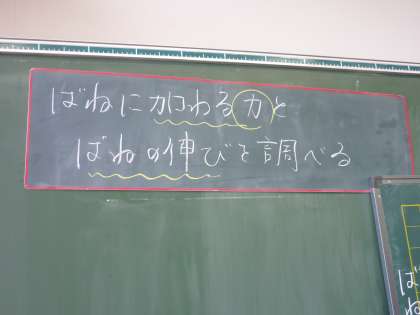 ばねに加わる力と
ばねの伸びを調べる
ば
ね